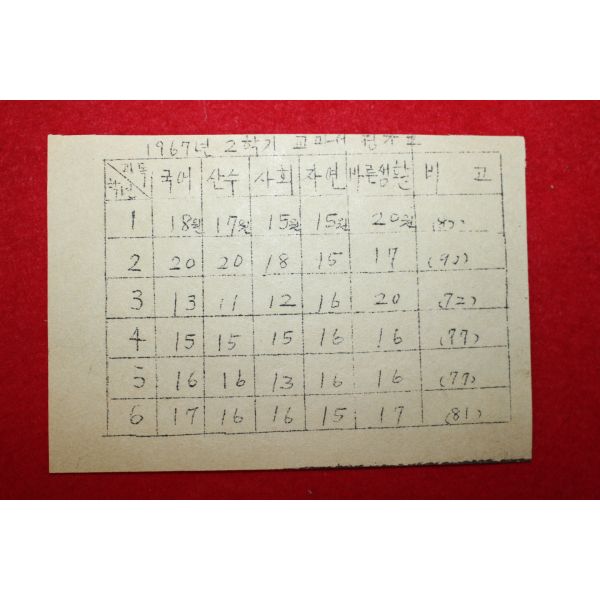 1967년 2학기 교과서
과목 국어 산수 사회 자연 바른생활 비 고
학년
1 18원 17원 15원 15원 20원
2 20 20 18 15 17 (90)
3 13 11 12 16 20 (72)
4 15 15 15 16 16 (77)
5 16 16 13 16 16 (77)
6 17 16 16 15 17 (81)